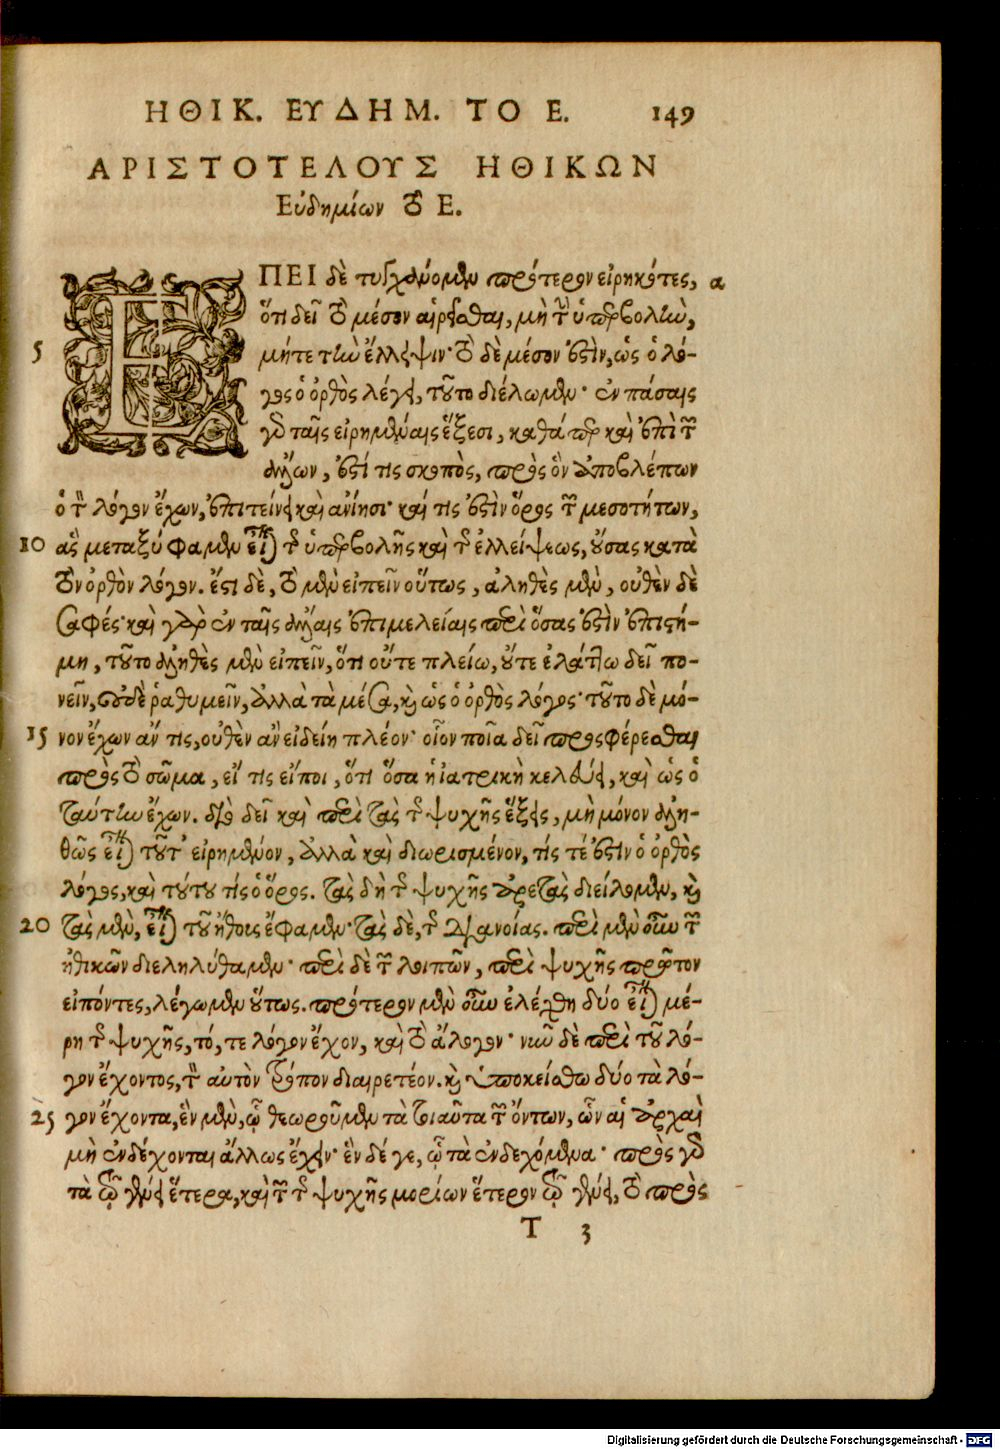 ΗΘΙΚ. ΕΥΔΗΜ. ΤΟ Ε. 149
ΑΡΙΣΤΟΤΕΛΟΥΣ ΗΘΙΚΩΝ
Εὐδημίων τὸ Ε.
ΕΠΕΙ δὲ τυγχάνομεν πρότερον εἰρηκότες, α
ὅτι δεῖ τὸ μέσον αἱρεῖσθαι, μὴ τὴν ὑπερβολὴν,
5 μήτε τὴν ἔλλειψιν· τὸ δὲ μέσον ἐστὶν, ὡς ὁ λό-
γος ὁ ὀρθὸς λέγει, τοῦτο διέλωμεν· ἐν πάσαις
γὰρ ταῖς εἰρημέναις ἕξεσι, καθάπερ καὶ ἐπὶ τῶν
ἄλλων, ἐστί τις σκοπὸς, πρὸς ὃν ἀποβλέπων
ὁ τὸν λόγον ἔχων, ἐπιτείνει καὶ ἀνίησι· καί τις ἐστὶν ὅρος τῶν μεσοτήτων,
10 ἃς μεταξύ φαμεν εἶναι τῆς ὑπερβολῆς καὶ τῆς ἐλλείψεως, οὔσας κατὰ
τὸν ὀρθὸν λόγον. ἔστι δὲ, τὸ μὲν εἰπεῖν οὕτως, ἀληθὲς μὲν, οὐθὲν δὲ
σαφές· καὶ γὰρ ἐν ταῖς ἄλλαις ἐπιμελείαις περὶ ὅσας ἐστὶν ἐπιστή-
μη, τοῦτο ἀληθὲς μὲν εἰπεῖν, ὅτι οὔτε πλείω, οὔτε ἐλάττω δεῖ πο-
νεῖν, οὐδὲ ῥαθυμεῖν, ἀλλὰ τὰ μέσα, καὶ ὡς ὁ ὀρθὸς λόγος· τοῦτο δὲ μό-
15 νον ἔχων ἄν τις, οὐθὲν ἂν εἰδείη πλέον· οἷον ποῖα δεῖ προσφέρεσθαι
πρὸς τὸ σῶμα, εἴ τις εἴποι, ὅτι ὅσα ἡ ἰατρικὴ κελεύει, καὶ ὡς ὁ
ταύτην ἔχων. διὸ δεῖ καὶ περὶ τὰς τῆς ψυχῆς ἕξεις, μὴ μόνον ἀλη-
θῶς εἶναι τοῦτ' εἰρημένον, ἀλλὰ καὶ διωρισμένον, τίς τέ ἐστιν ὁ ὀρθὸς
λόγος, καὶ τούτου τίς ὁ ὅρος. τὰς δὴ τῆς ψυχῆς ἀρετὰς διειλόμεθα, καὶ
20 τὰς μὲν, εἶναι τοῦ ἤθους ἔφαμεν· τὰς δὲ, τῆς διανοίας. περὶ μὲν οὖν τῶν
ἠθικῶν διεληλύθαμεν· περὶ δὲ τῶν λοιπῶν, περὶ ψυχῆς πρῶτον
εἰπόντες, λέγωμεν οὕτως. πρότερον μὲν οὖν ἐλέχθη δύο εἶναι μέ-
ρη τῆς ψυχῆς, τό, τε λόγον ἔχον, καὶ τὸ ἄλογον· νῦν δὲ περὶ τοῦ λό-
γον ἔχοντος, τὸν αὐτὸν τρόπον διαιρετέον. καὶ ὑποκείσθω δύο τὰ λό-
25 γον ἔχοντα, ἓν μὲν, ᾧ θεωροῦμεν τὰ τοιαῦτα τῶν ὄντων, ὧν αἱ ἀρχαὶ
μὴ ἐνδέχονται ἄλλως ἔχειν· ἓν δέ γε, ᾧ τὰ ἐνδεχόμενα· πρὸς γὰρ
τὰ τῷ γένει ἕτερα, καὶ τῶν τῆς ψυχῆς μορίων ἕτερον τῷ γένει, τὸ πρὸς
T 3
Digitalisierung gefördert durch die Deutsche Forschungsgemeinschaft - DFG